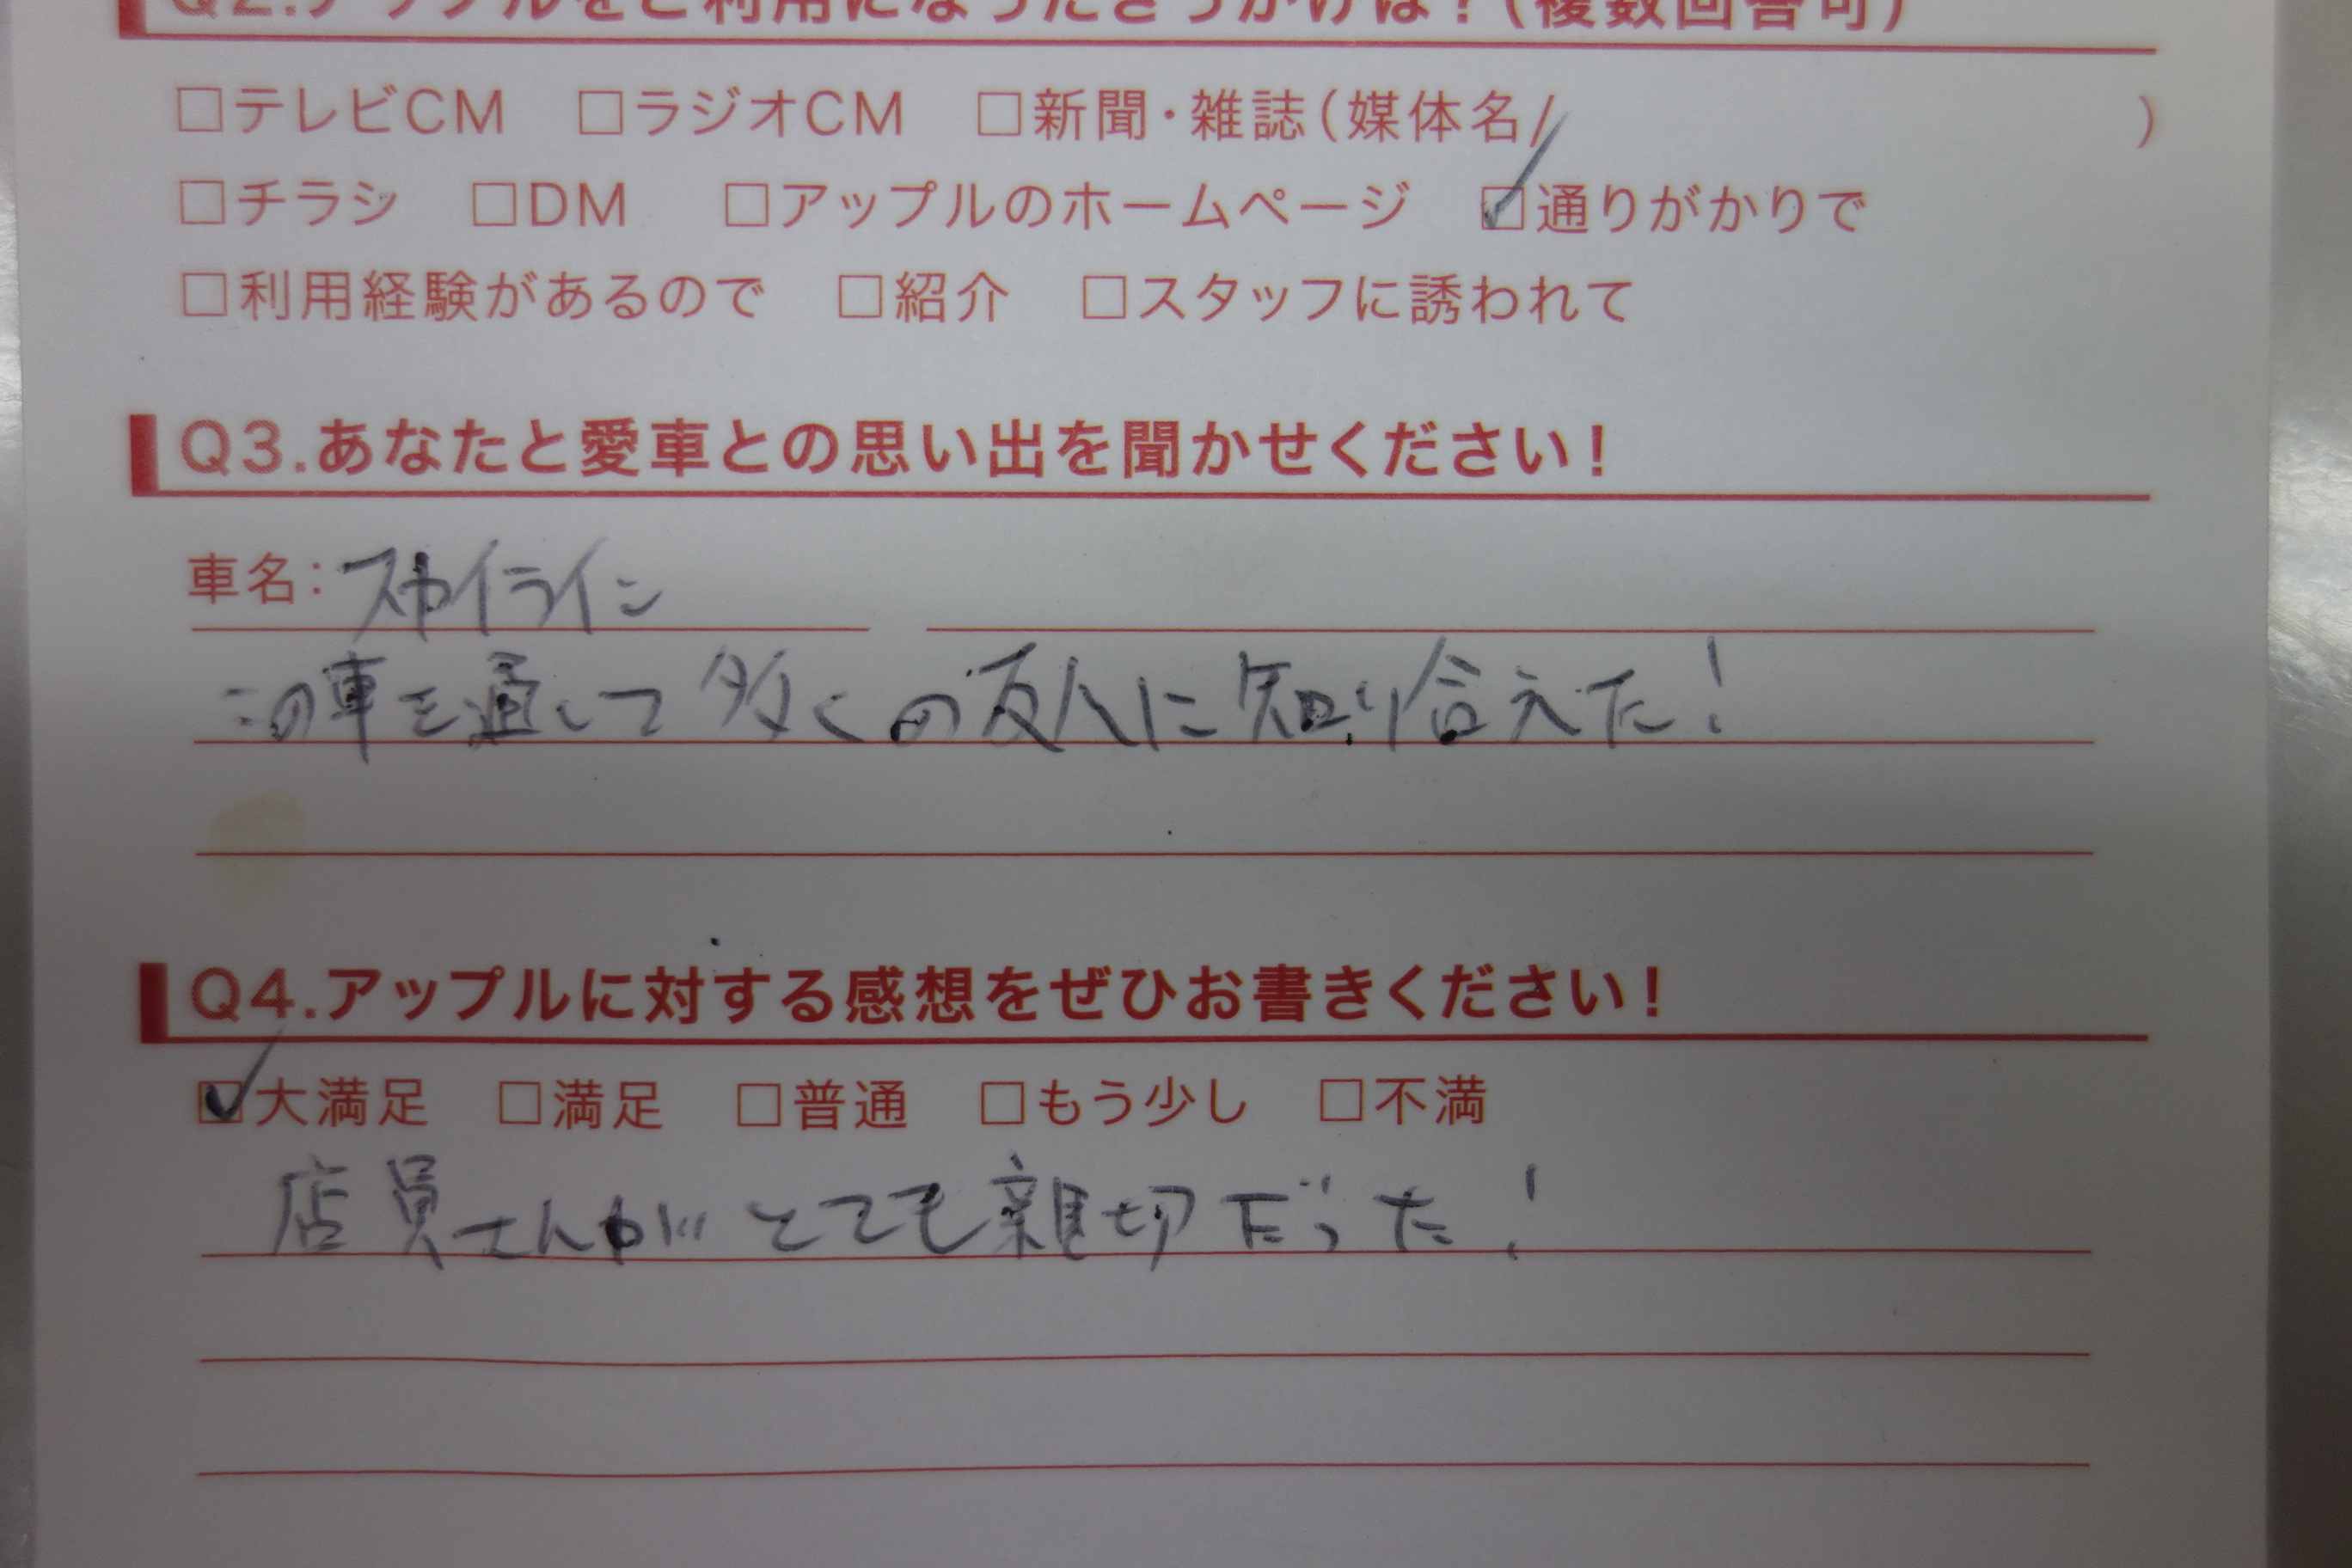 Q2.アップルをご利用になったきっかけは?(複数回答可)
□テレビCM □ラジオCM □新聞・雑誌(媒体名/ )
□チラシ □DM □アップルのホームページ ☑通りがかりで
□利用経験があるので □紹介 □スタッフに誘われて
Q3.あなたと愛車との思い出を聞かせください!
車名:スカイライン
この車を通して多くの友人に知り合えた!
Q4.アップルに対する感想をぜひお書きください!
☑大満足 □満足 □普通 □もう少し □不満
店員さんがとても親切だった!